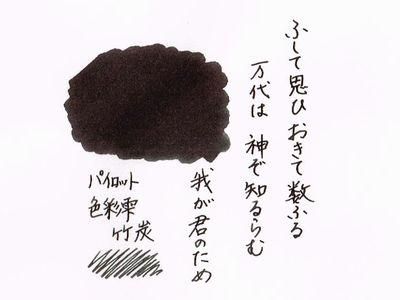 ふして思ひ おきて数ふる
万代は 神ぞ知るらむ
我が君のため
パイロット
色彩雫
竹炭